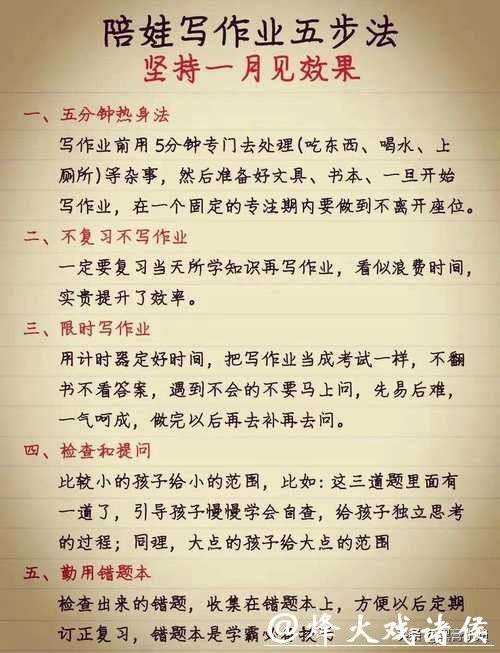 陪娃写作业五步法
坚持一月见效果
一、五分钟热身法
写作业前用5分钟专门去处理(吃东西、喝水、上
厕所)等杂事，然后准备好文具、书本、一旦开始
写作业，在一个固定的专注期内要做到不离开座位。
二、不复习不写作业
一定要复习当天所学知识再写作业，看似浪费时间，
实贵提升了效率。
三、限时写作业
用计时器定好时间，把写作业当成考试一样，不翻
书不看答案，遇到不会的不要马上问，先易后难，
一气呵成，做完以后再去补再去问。
四、检查和提问
比较小的孩子给小的范围，比如：这三道题里面有
一道了，引导孩子慢慢学会自查，给孩子独立思考
的过程；同理，大点的孩子给大点的范围
五、勤用错题本
检查出来的错题，收集在错题本上，方便以后定期
订正复习，错题本是学霸少
@烽火戏诸侯